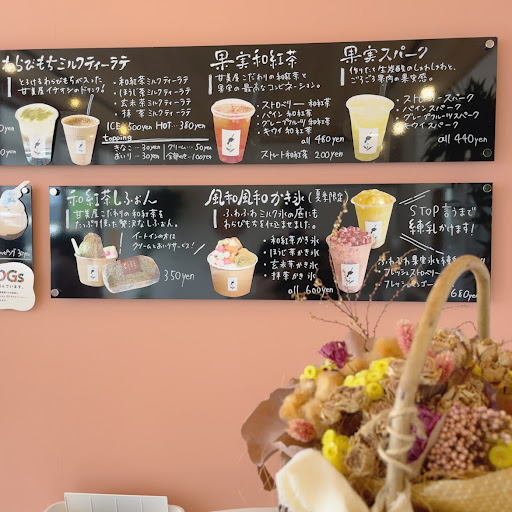 わらびもちミルクティーラテ
とろけるわらびもちが入った
甘美屋イチオシのドリンク!
・和紅茶ミルクティーラテ
・ほうじ茶ミルクティーラテ
・玄米茶ミルクティーラテ
・抹茶ミルクティーラテ
ICE…500yen HOT…380yen
Topping
きなこ…30yen クリーム…50yen
あいり…30yen
果実和紅茶
甘美屋こだわりの和紅茶と
果実の最高なコンビネーション。
・ストロベリー和紅茶
・パイン和紅茶
・グレープフルーツ和紅茶
・キウイ和紅茶
all 480yen
ストレート和紅茶 200yen
果実スパーク
ごろごろ果肉の果実感。
・ストロベリースパーク
・パインスパーク
・グレープフルーツスパーク
・キウイスパーク
all 440yen
和紅茶しふぉん
甘美屋こだわりの和紅茶を
たっぷり使った贅沢なしふぉん。
イートインの方は
クリームとあいりサービス!
350yen
風和風和かき氷(夏季限定)
ふわふわミルク氷の底にも
わらびもちを仕込ませました。
・和紅茶かき氷
・ほうじ茶かき氷
・玄米茶かき氷
・抹茶かき氷
all 600yen
STOP言うまで
練乳かけます!
ふわふわ果実氷を
フレッシュストロベリー
フレッシュマンゴー
680yen
OGs